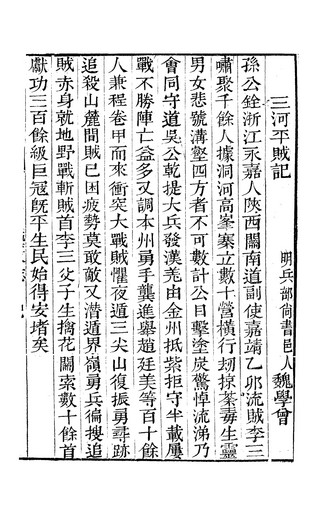 三河平賊記
明兵部尚書邑人魏學曾
孫公銓浙江永嘉人陝西關南道副使嘉靖乙卯流賊李三
嘯聚千餘人據洞河高峯寨立數十營橫行刼掠荼毒生靈
男女悲號溝壑四方者不可數計公目擊塗炭驚悼流涕乃
會同守道吳公乾提大兵發漢羌由金州抵紫拒守半載屢
戰不勝陣亡益多又調本州勇手龔進舉趙廷美等百十餘
人兼程卷甲而來衝突大戰賊懼夜遁三尖山復振勇尋跡
追殺山麓間賊已困疲勢莫敢敵又潛遁界嶺勇兵徧搜追
賊赤身就地野戰斬賊首李三父子生擒花關索數十餘首
獻功三百餘級巨寇旣平生民始得安堵矣